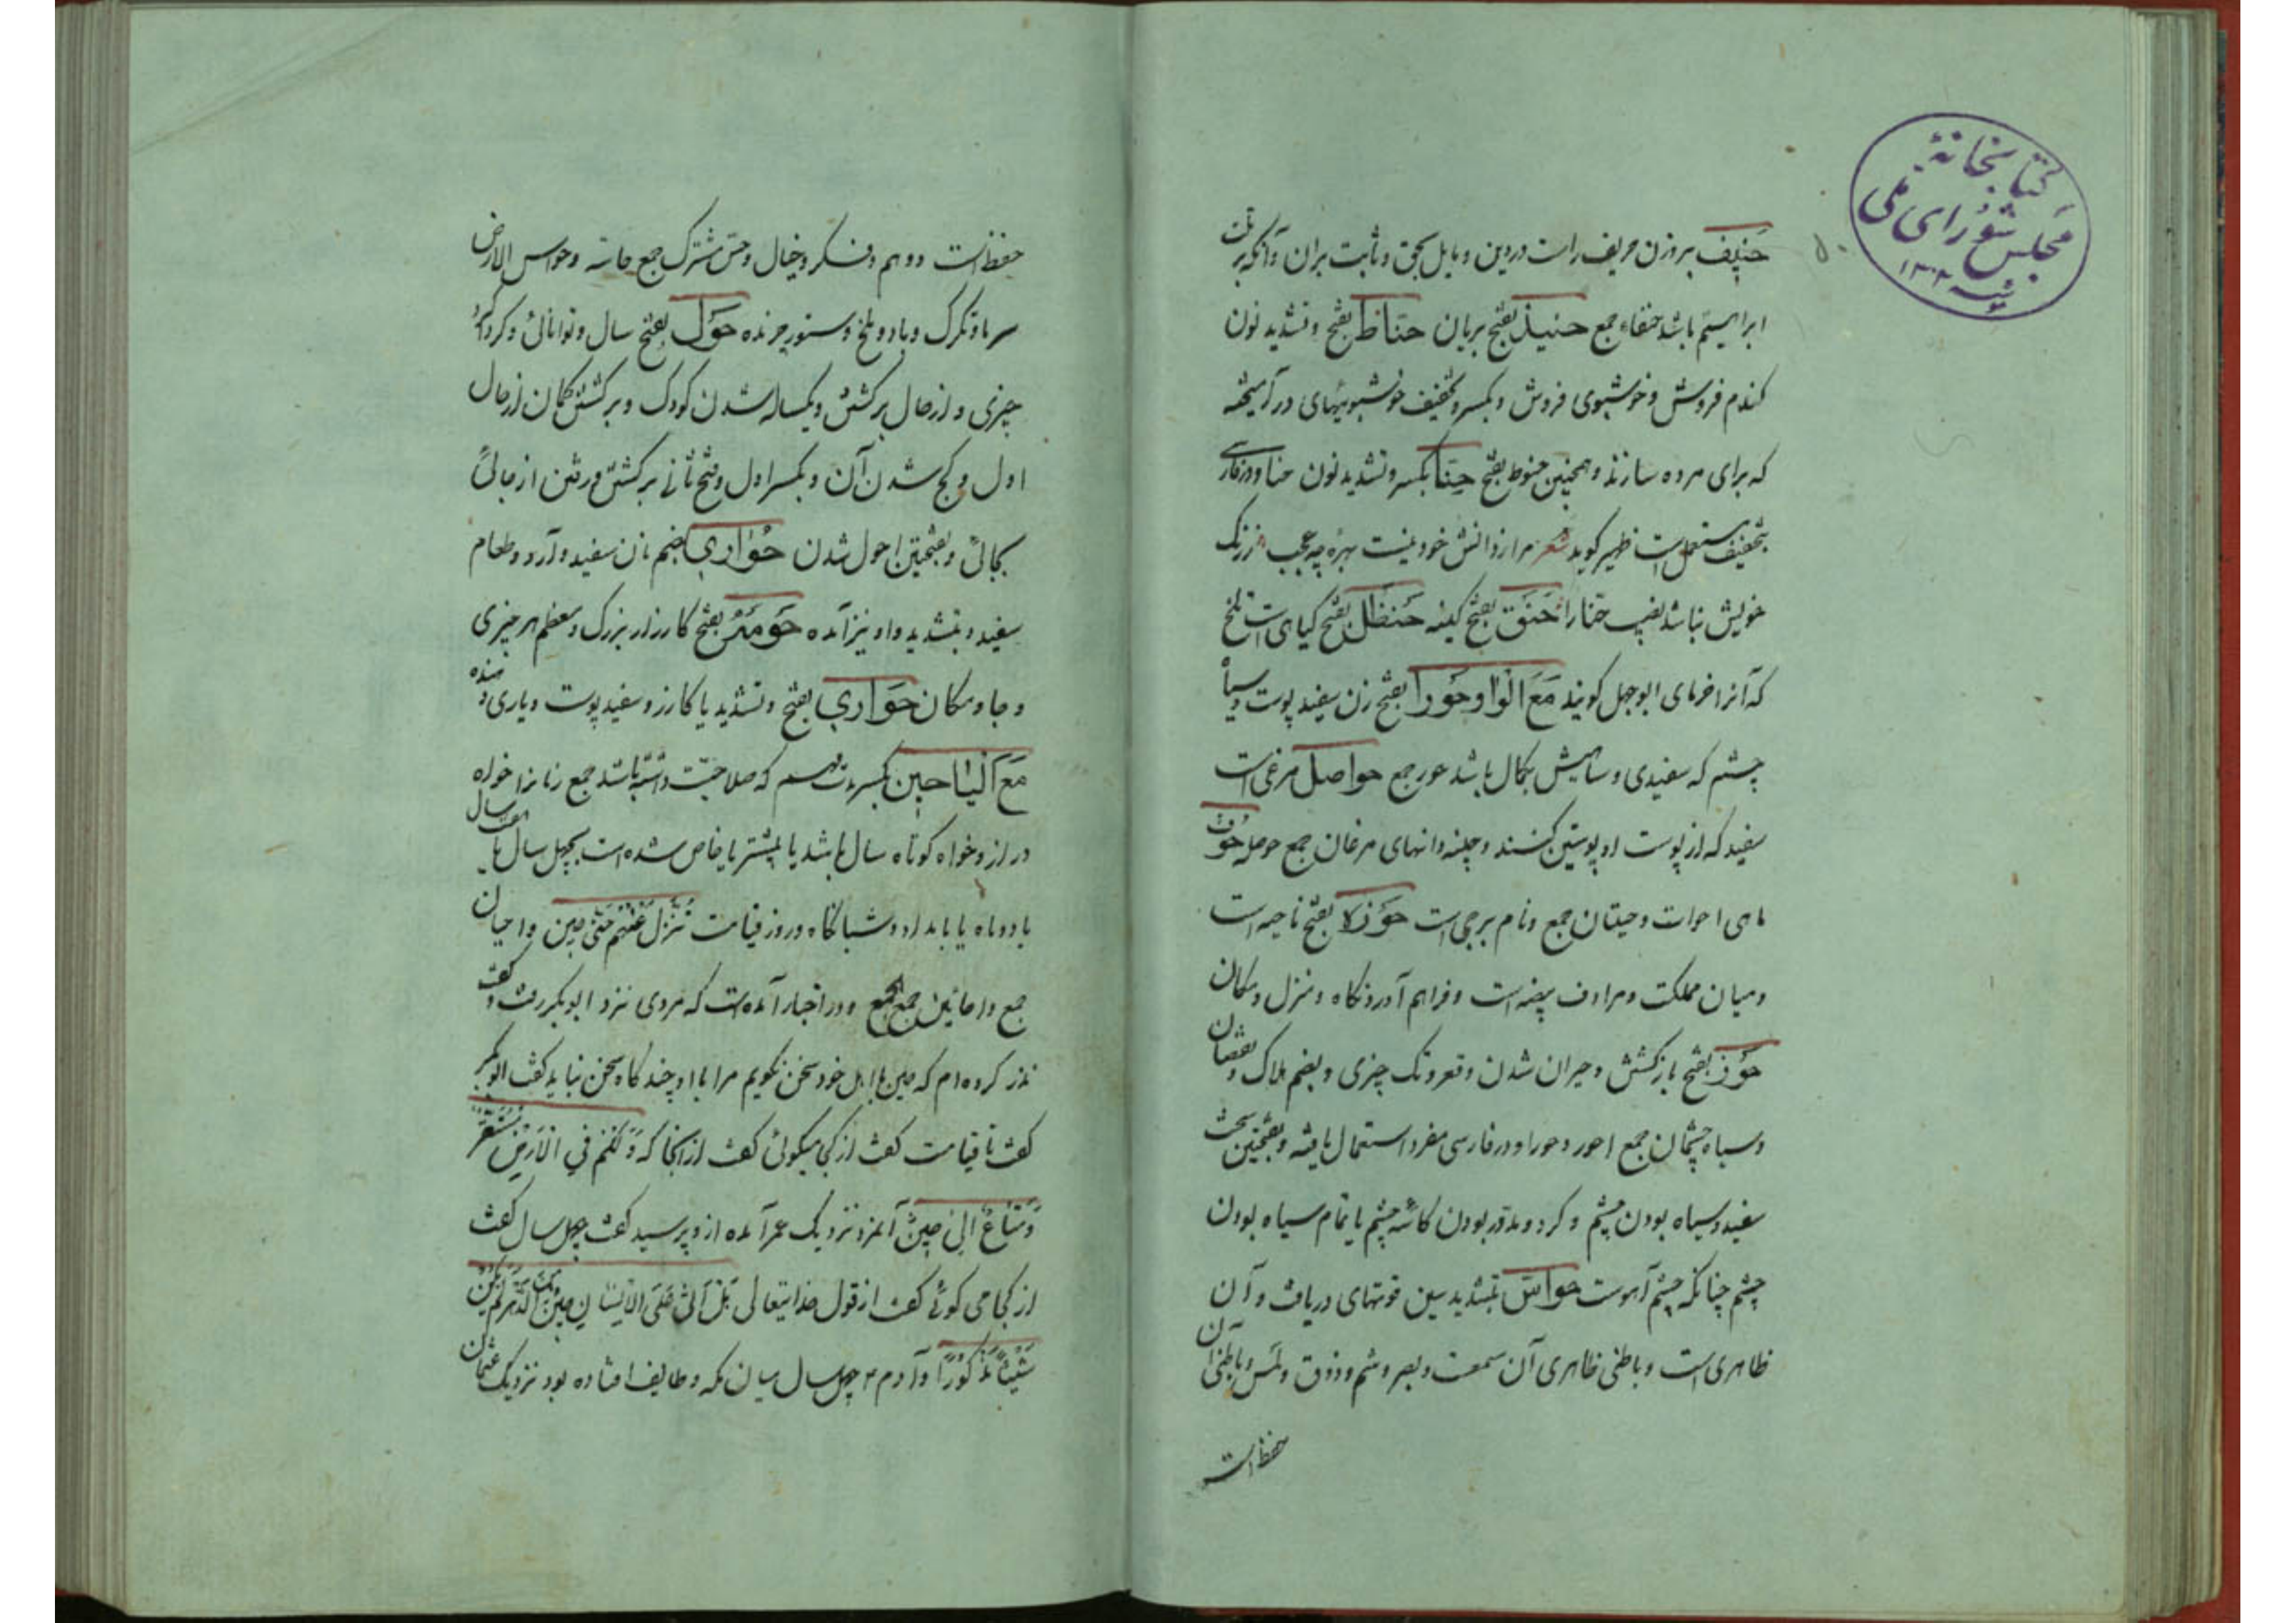 کتابخانهٔ
مجلس شورای ملی
حنیف بر وزن حریف راست در دین و مایل بحق و ثابت بران و آنکه بر ملت
ابراهیم باشد حنفاء جمع حنیذ بفتح بریان حناط بفتح و تشدید نون
کندم فروش و خوشبوی فروش و بکسر و تخفیف خوشبوئیهای در آمیخته
که برای مرده سازند و همچنین حنوط بفتح حنا بکسر و تشدید نون حنا و در فارسی
بتخفیف مستعمل است ظهیر کوید شعر مرا ز دانش خود نیست بهره چه عجب ز رنک
خویش نباشد نصیب حنا را حنق بفتح کینه حنظل بفتح کیاهی است تلخ
که آنرا خرمای ابوجهل کویند مع الواو حورا بفتح زن سفید پوست و سیاه
چشم که سفیدی و سیاهیش بکمال باشد حور جمع حواصل مرغی است
سفید که از پوست او پوستین کنند و چینه دانهای مرغان جمع حوصله حوت
ماهی احوات و حیتان جمع و نام برجی است حوزه بفتح ناحیه است
و میان مملکت و مرادف بیضه است و فراهم آوردنکاه و منزل و مکان
حور بفتح بازکشتن و حیران شدن و قعر و تک چیزی و بضم هلاک و نقصان
و سیاه چشمان جمع احور و حورا و در فارسی مفرد استعمال یافته و بفتحین سخت
سفید و سیاه بودن چشم و کرد و مدور بودن کاسه چشم یا تمام سیاه بودن
چشم چنانکه چشم آهوست حواس بتشدید سین قوتهای دریافت و آن
ظاهری است و باطنی ظاهری آن سمعست و بصر و شم و ذوق و لمس و باطنی آن
حفظ است
حفظ است و وهم و فکر و خیال و حس مشترک جمع حاسه و حواس الارض
سرما و تکرک و باد و ملخ و ستور چرنده حول بفتح سال و توانائی و کرداکرد
چیزی و از حال برکشتن و یکساله شدن کودک و برکشتن کمان از حال
اول و کج شدن آن و بکسر اول و فتح ثانی برکشتن و رفتن از حالی
بحالی و بفتحتین احول شدن حواری بضم نان سفید و آرد و طعام
سفید و بتشدید واو نیز آمده حومه بفتح کارزار بزرک و معظم هر چیزی
و جا و مکان حواری بفتح و تشدید یا کازر و سفید پوست و یاری دهنده
مع الیا حین بکسر وقت مبهم که صلاحیت داشته باشد جمع زمانرا خواه
دراز و خواه کوتاه سال باشد یا بیشتر یا خاص شده است بچهل سال یا هفت سال
یا دو ماه یا بامداد و شبانکاه و روز قیامت فتول عنهم حتی حین و احیان
جمع و احایین جمع الجمع و در اخبار آمده است که مردی نزد ابوبکر رفت و کفت
نذر کرده ام که حین با اهل خود سخن نکویم مرا با او چند کاه سخن نباید کفت ابوبکر
کفت تا قیامت کفت از کجا میکوئی کفت از آنجا که و لکم فی الارض مستقر
و متاع الی حین آنمرد نزدیک عمر آمده ازو پرسید کفت چهل سال کفت
از کجا می کوئی کفت از قول خدایتعالی هل اتی علی الانسان حین من الدهر لم یکن
شیئا مذکورا و آدم ۴ چهل سال میان مکه و طایف افتاده بود نزدیک عثمان